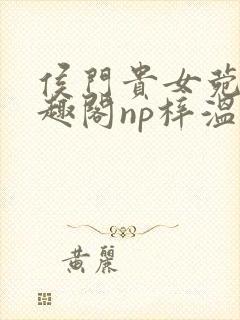 侯門貴女菀
趣閣np梓溫
黃麗